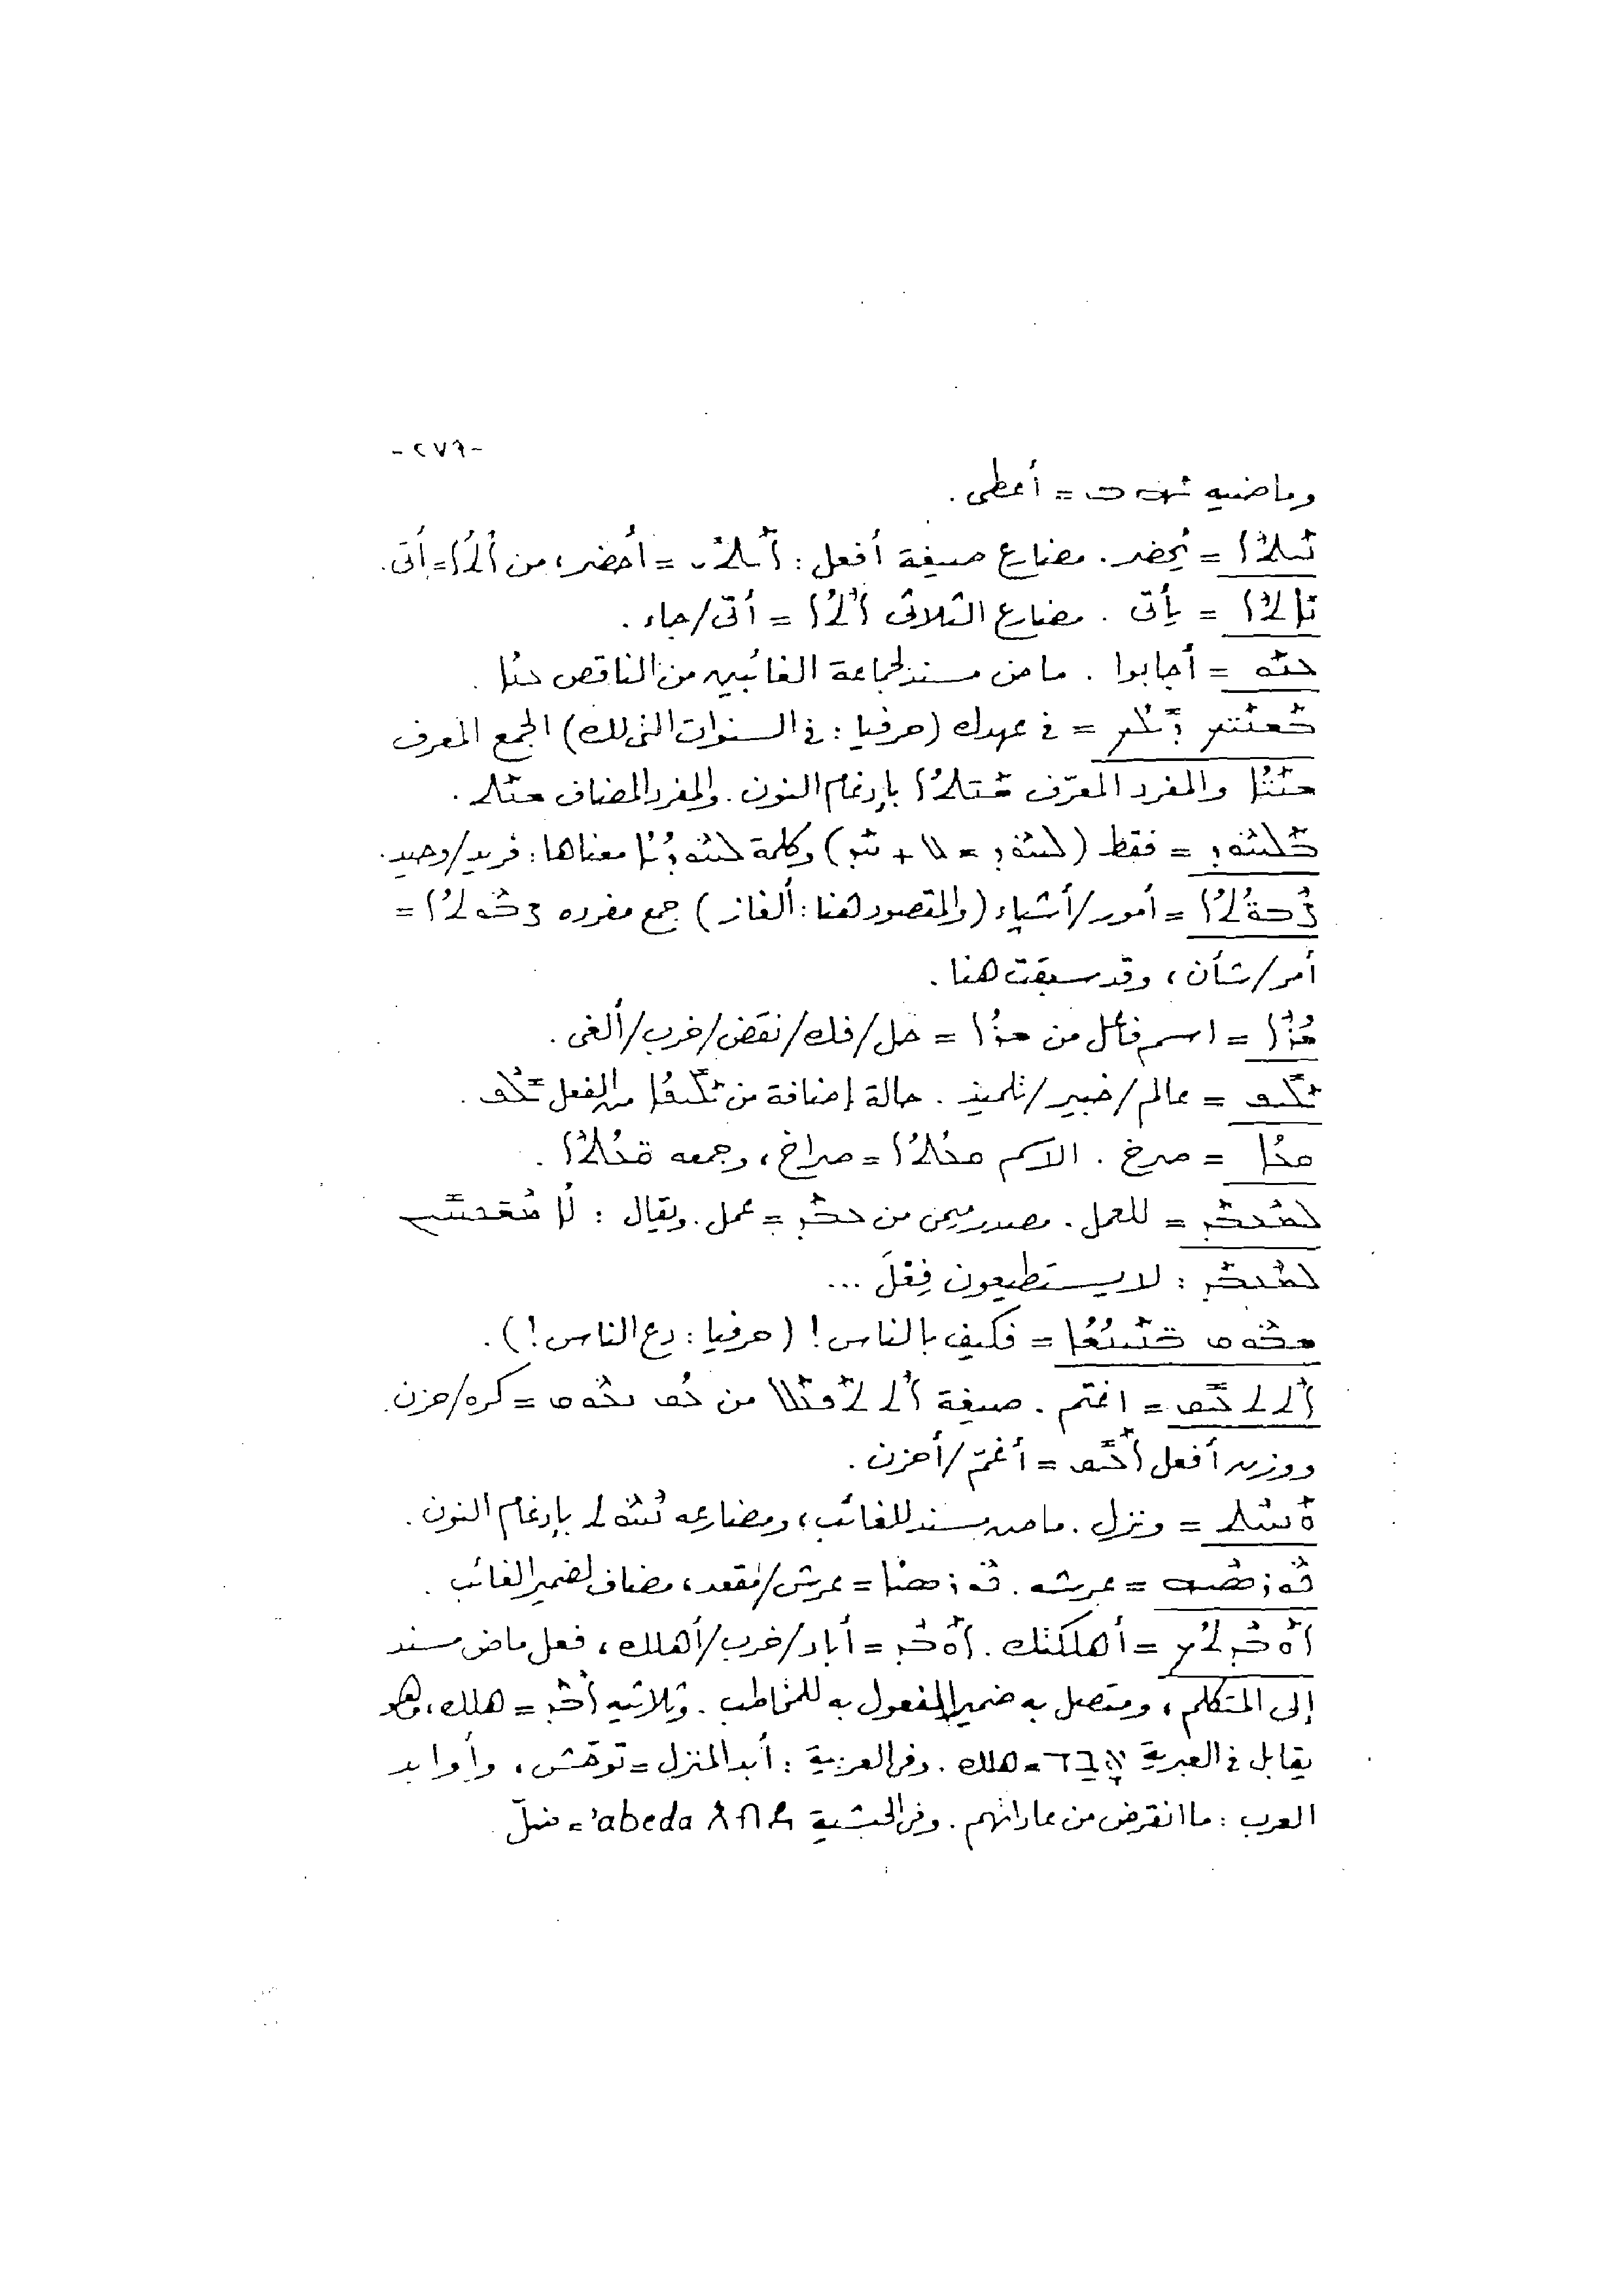 -٢٧٦-
وماضيه ܝܗܒ = أعطى.
ܢܝܬܐ = يُحضر. مضارع صيغة أفعل: ܐܝܬܝ = أحضر، من ܐܬܐ = أتى.
ܢܐܬܐ = يأتى. مضارع الثلاثى ܐܬܐ = أتى/جاء.
ܥܢܘ = أجابوا. ماض مسند لجماعة الغائبين من الناقص ܥܢܐ.
ܒܫܢܝܟ ܕܝܠܟ = فى عهدك (حرفيا: فى السنوات التى لك) الجمع المعرف
ܫܢܝܐ والمفرد المعرّف ܫܢܬܐ بإدغام النون. والمفرد المضاف ܫܢܬ.
ܒܠܚܘܕ = فقط (ܠܚܘܕ = ܠܐ + ܚܕ) وكلمة ܠܚܘܕܝܐ معناها: فريد/وحيد.
ܨܒܘܬܐ = أمور/أشياء (والمقصود هنا: ألغاز) جمع مفرده ܨܒܘܬܐ =
أمر/شأن، وقد سبقت هنا.
ܫܪܐ = اسم فاعل من ܫܪܐ = حل/فك/نقض/خرب/ألغى.
ܝܠܝܦ = عالم/خبير/تلميذ. حالة إضافة من ܝܠܝܦܐ من الفعل ܝܠܦ.
ܩܥܐ = صرخ. الاسم ܩܥܬܐ = صراخ، وجمعه ܩܥܬܐ.
ܠܡܥܒܕ = للعمل. مصدر ميمى من ܥܒܕ = عمل. ويقال: ܠܐ ܡܫܟܚܝܢ
ܠܡܥܒܕ: لا يستطيعون فِعْلَ ...
ܫܒܘܩ ܒܢܝܢܫܐ = فكيف بالناس! (حرفيا: دع الناس!).
ܐܬܬܥܝܩ = اغتم. صيغة ܐܬܬܦܥܠ من ܥܩ ܢܥܘܩ = كره/حزن.
ووزن أفعل ܐܥܝܩ = أغمّ/أحزن.
ܘܢܚܬ = ونزل. ماض مسند للغائب، ومضارعه ܢܚܘܬ بإدغام النون.
ܟܘܪܣܝܗ = عرشه. ܟܘܪܣܝܐ = عرش/مقعد، مضاف لضمير الغائب.
ܐܘܒܕܬܟ = أهلكتك. ܐܘܒܕ = أباد/خرب/أهلك، فعل ماض مسند
إلى المتكلم، ومتصل به ضمير المفعول به للمخاطب. وثلاثيه ܐܒܕ = هلك، وهو
يقابل فى العبرية אָבַד = هلك. وفى العربية: أبد المنزل = توحّش، وأوابد
العرب: ما انقرض من عاداتهم. وفى الحبشية አበደ abeda' = ضلّ